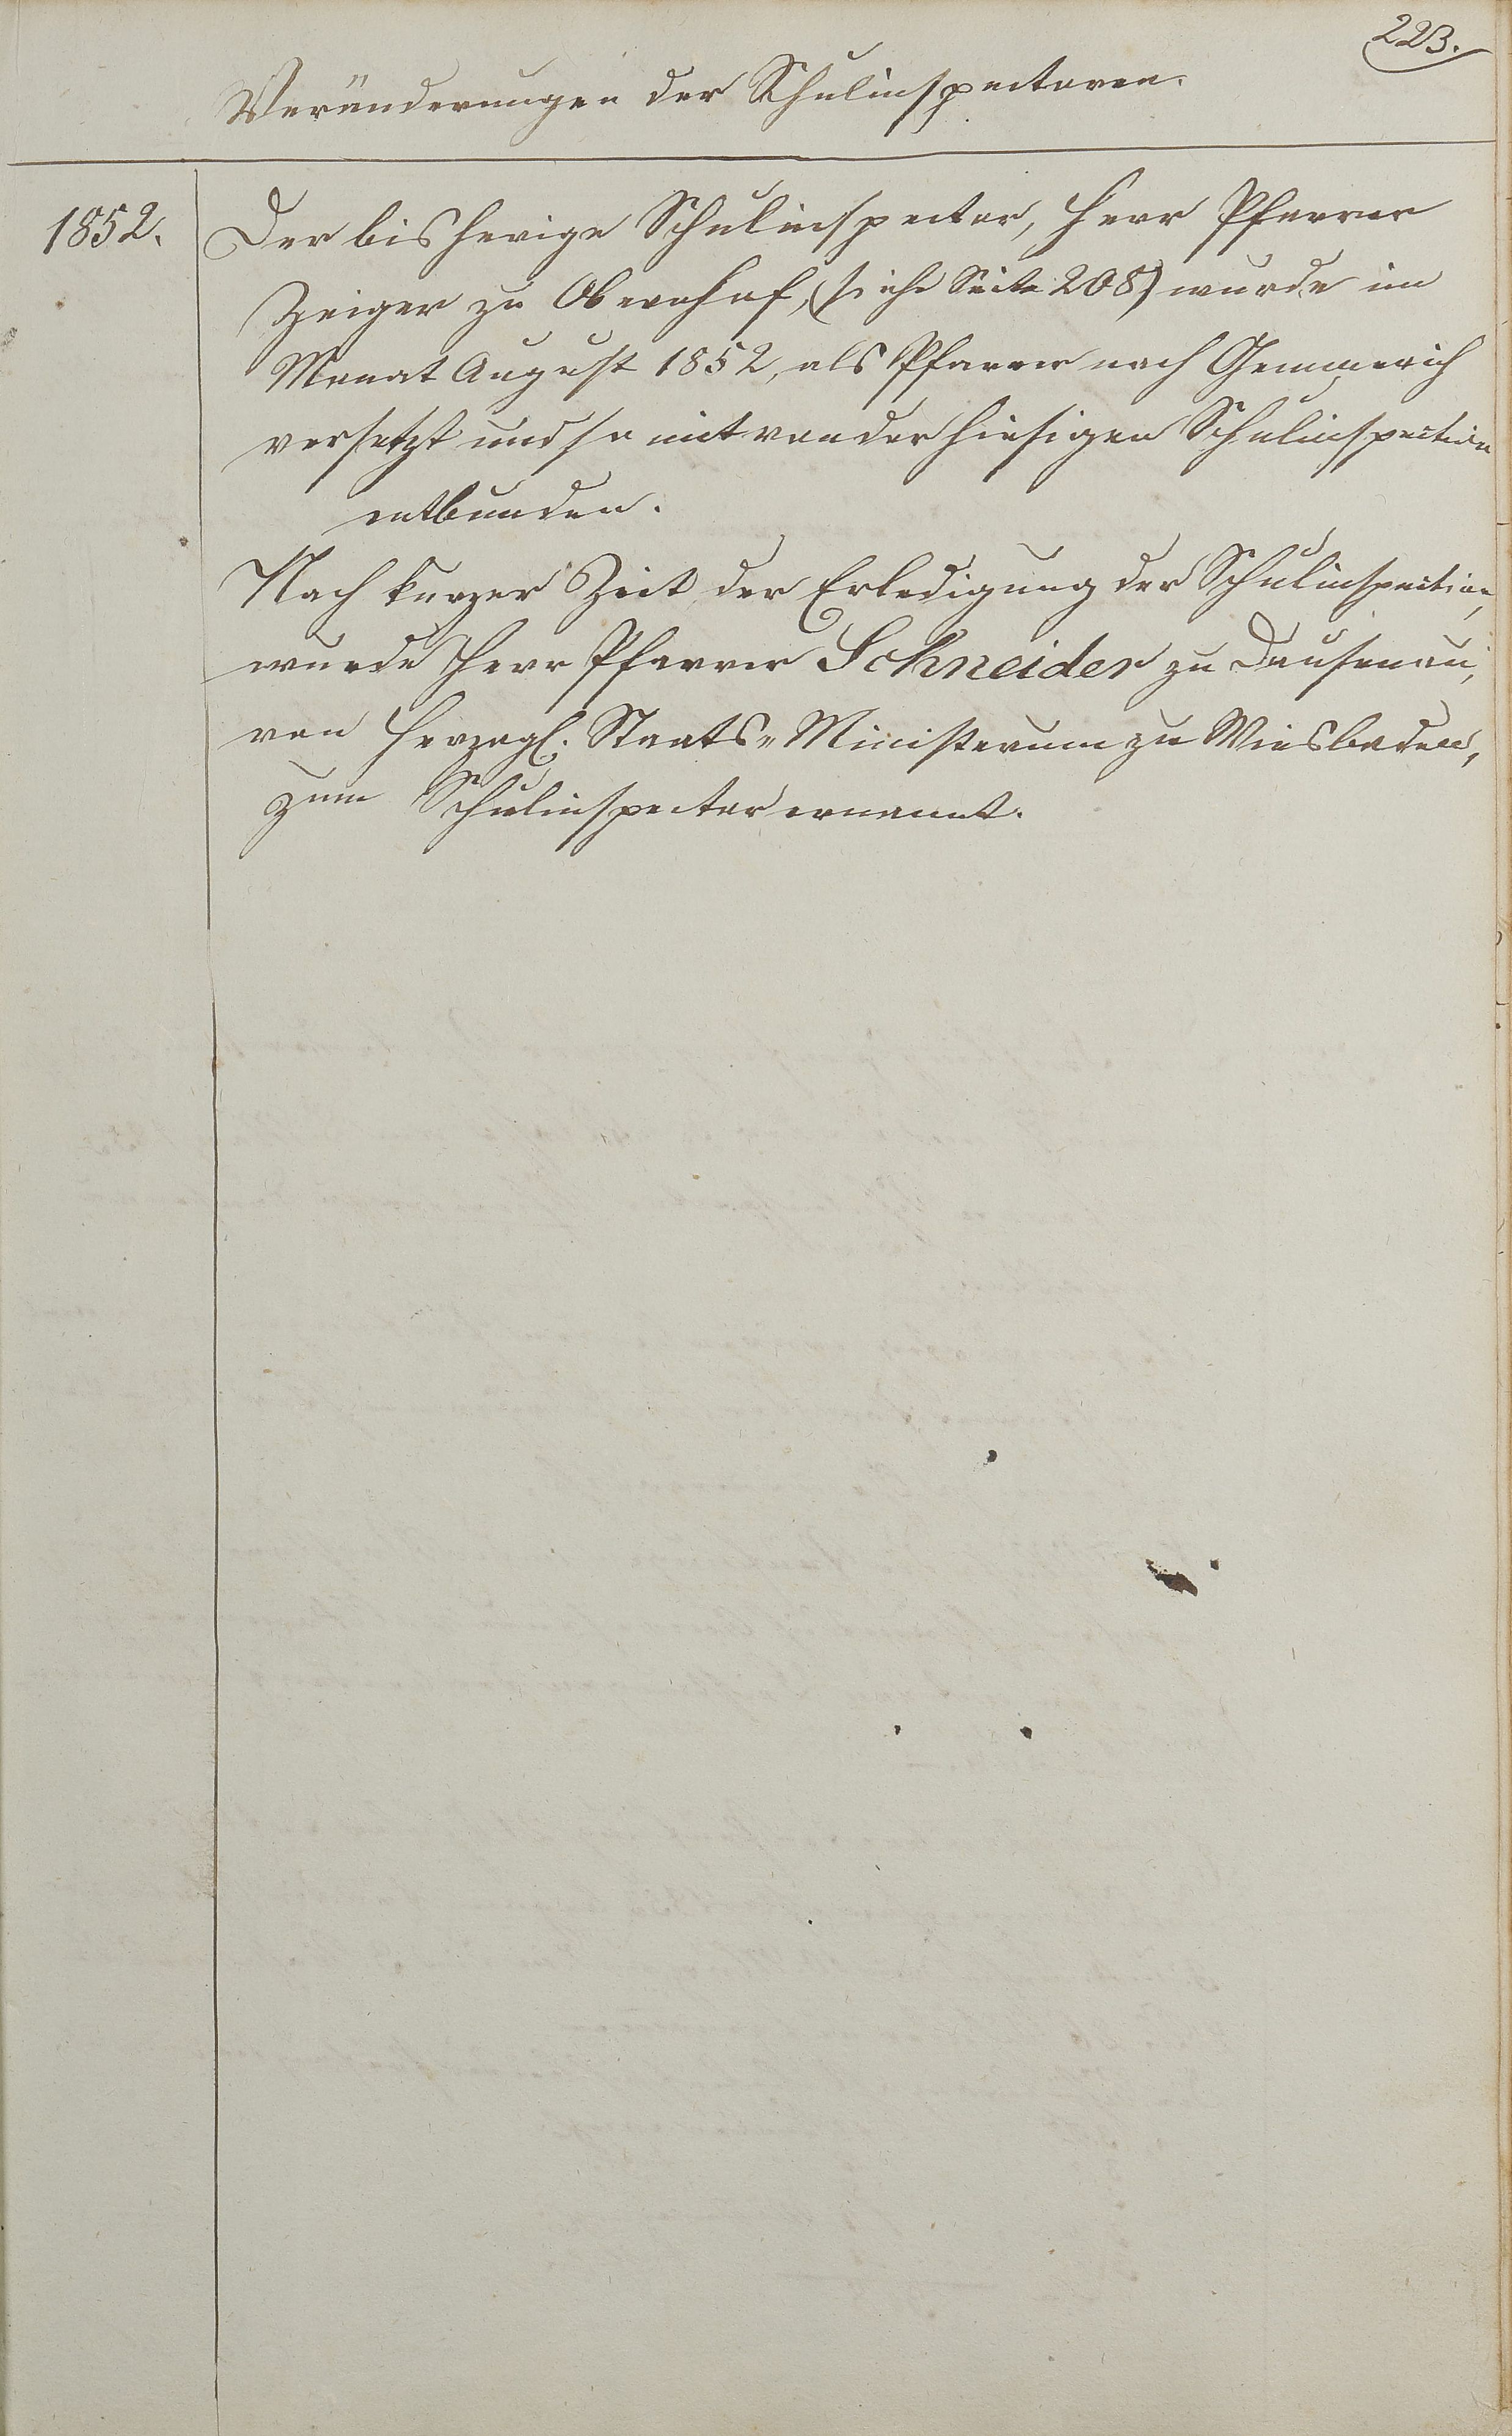 223.
Veränderungen der Schulinspectoren.
1852.
Der bisherige Schulinspector, Herr Pfarrer
Zeiger zu Obernhof, (siehe Seite 208) wurde im
Monat August 1852, als Pfarrer nach Gemmerich
versetzt und somit von der hiesigen Schulinspection
entbunden.
Nach kurzer Zeit der Erledigung der Schulinspection,
wurde Herr Pfarrer Schneider zu Dausenau,
von Herzogl. Staats-Ministerium zu Wiesbaden,
zum Schulinspector ernannt.